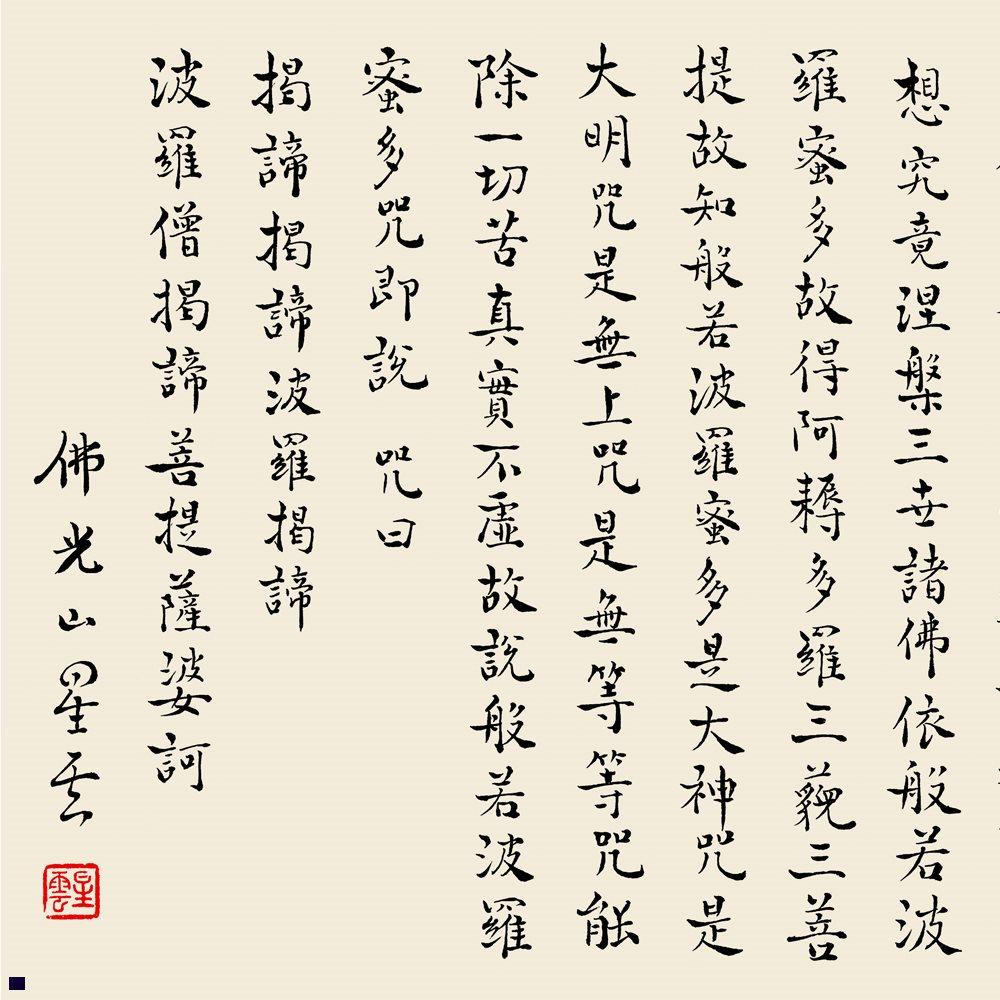 想究竟涅槃三世諸佛依般若波
羅蜜多故得阿耨多羅三藐三菩
提故知般若波羅蜜多是大神咒是
大明咒是無上咒是無等等咒能
除一切苦真實不虛故說般若波羅
蜜多咒即說 咒曰
揭諦揭諦波羅揭諦
波羅僧揭諦菩提薩婆訶
佛光山星云
星雲